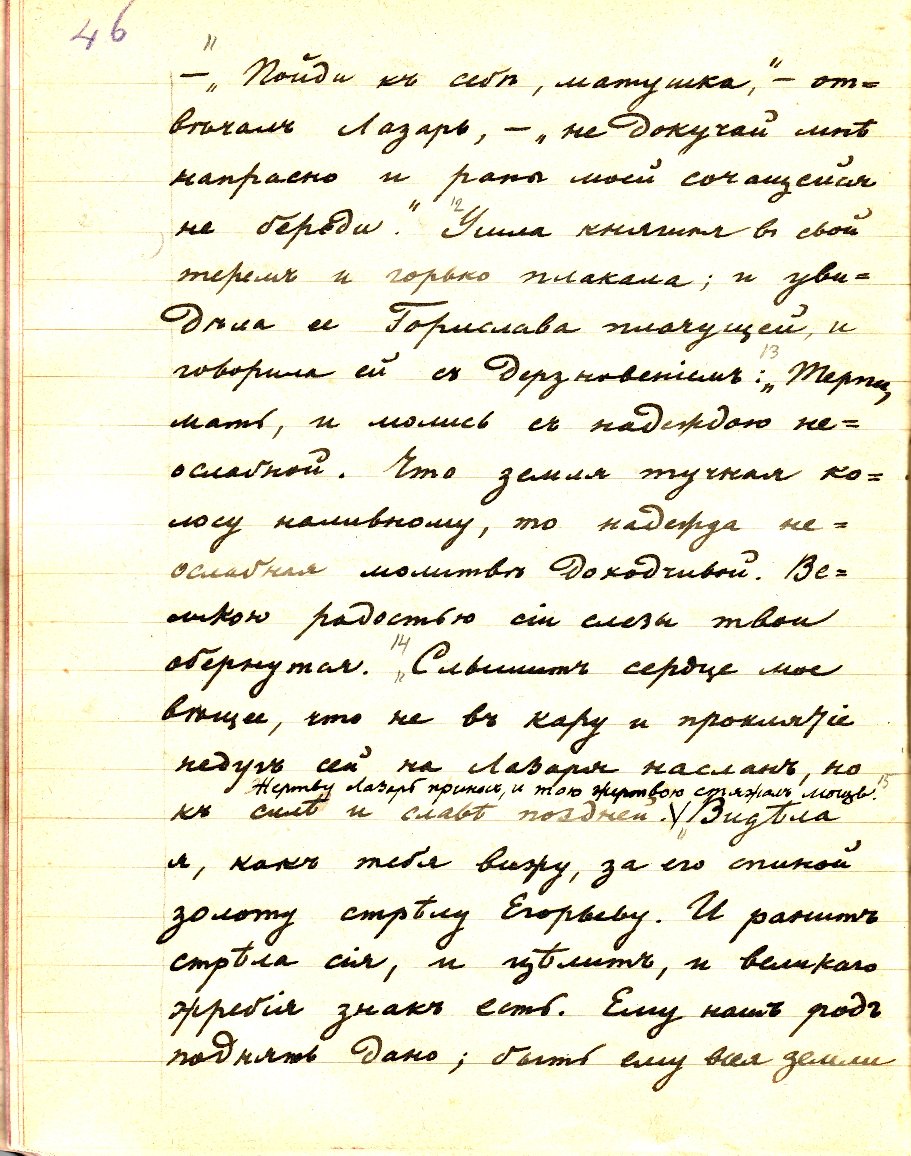 46
"
— „Пойди къ себѣ, матушка," — от=
вѣчалъ Лазарь, — „не докучай мнѣ
напрасно и раны моей сочащейся
не береди." 12 Ушла княгиня в свой
теремъ и горько плакала; и уви=
дѣла ее Горислава плачущей, и
говорила ей съ дерзновеніемъ: 13 „Терпи,
мать, и молись съ надеждою не=
ослабной. Что земля тучная ко=
лосу наливному, то надежда не=
ослабная молитвѣ доходчивой. Ве=
ликою радостью сіи слезы твои
обернутся. 14 „Слышитъ сердце мое
вѣщее, что не въ кару и проклятіе
недугъ сей на Лазаря насланъ, но
Жертву Лазарь принялъ, и тою жертвою стяжалъ мощь. 15
къ силѣ и славѣ поздней. \/ „Видѣла
я, какъ тебя вижу, за его спиной
золоту стрѣлу Егорьеву. И ранитъ
стрѣла сія, и цѣлитъ, и великаго
жребія знакъ есть. Ему нашъ родъ
поднять дано; быть ему всея земли